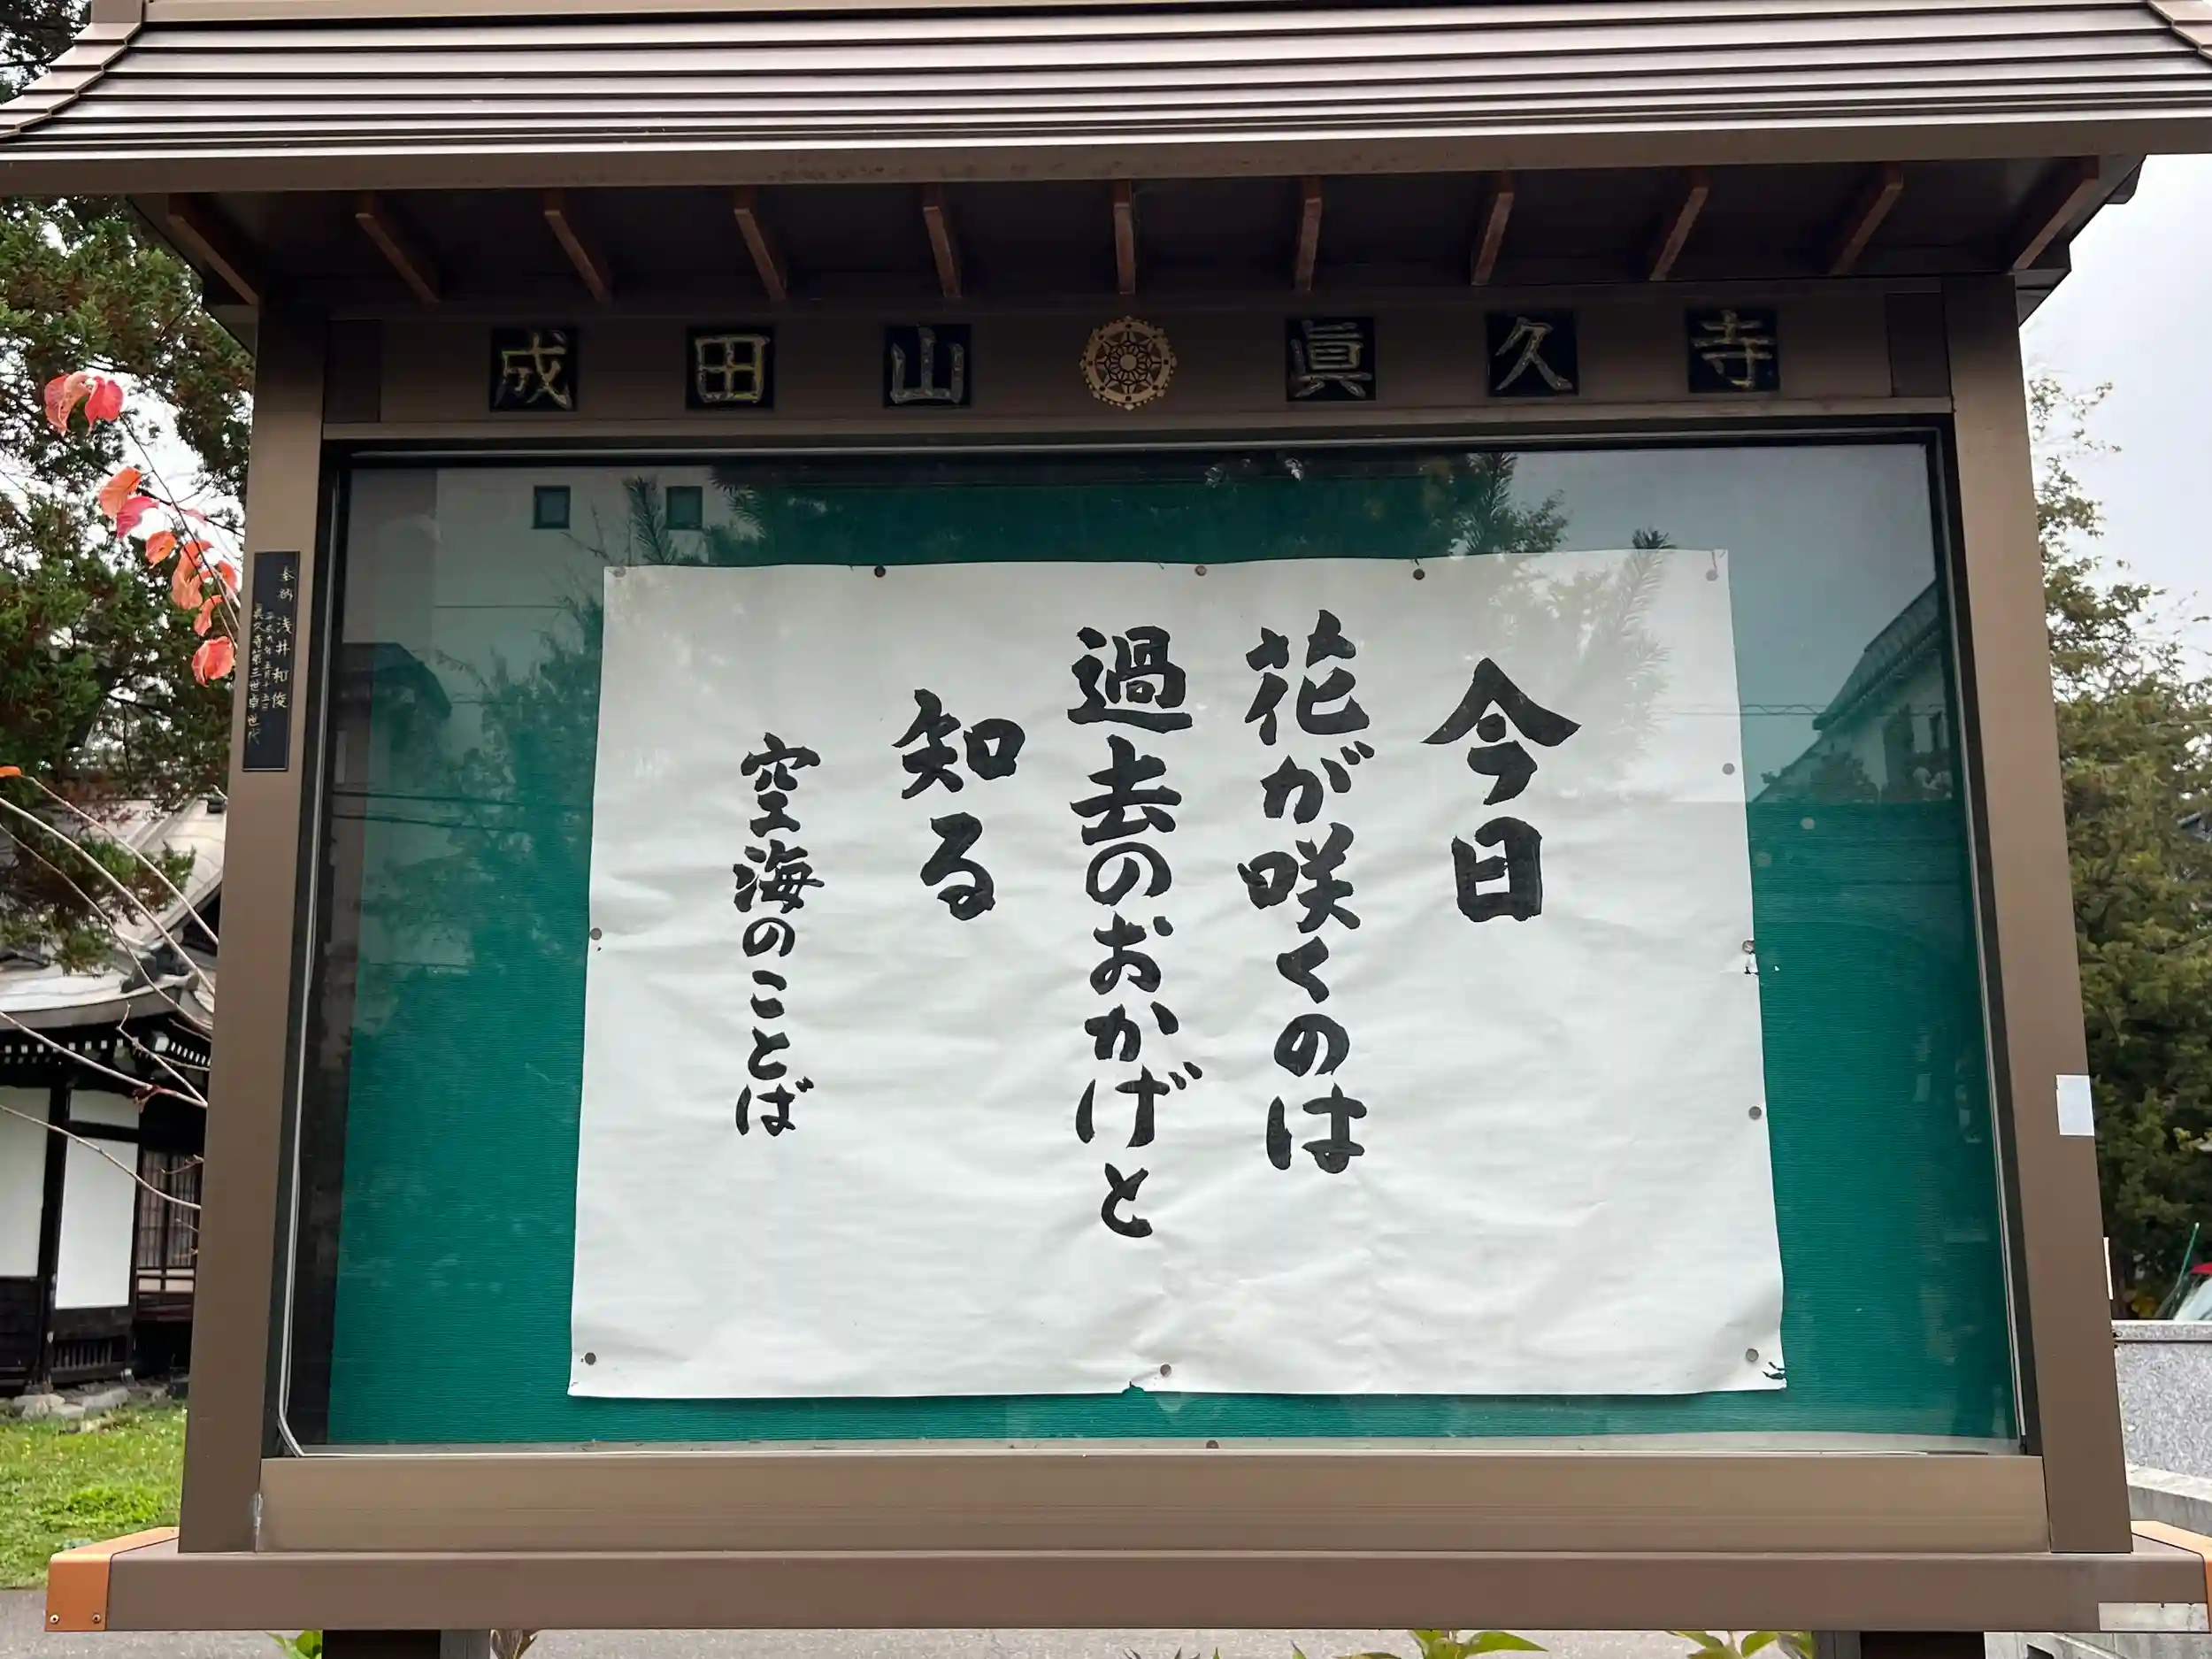 成田山 眞久寺
今日
花が咲くのは
過去のおかげと
知る
空海のことば
奉納 浅井和俊
眞久寺第三世卓世代